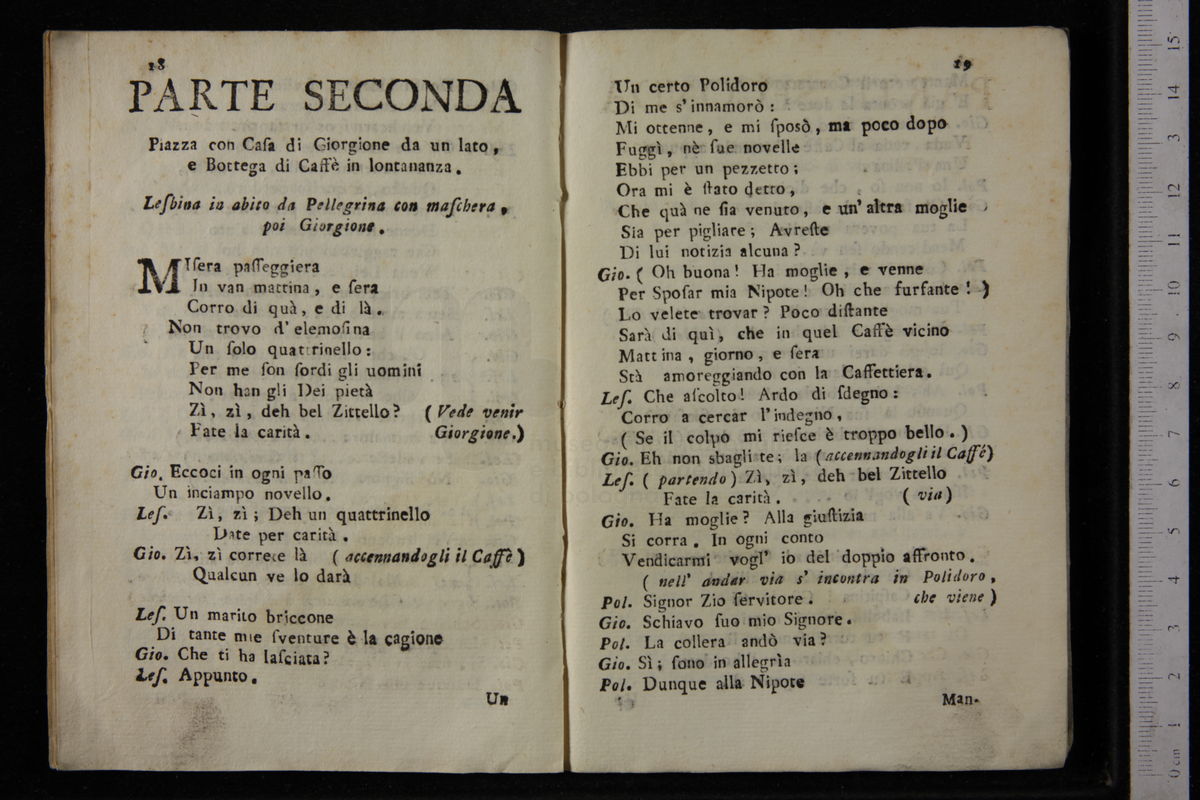 18
PARTE SECONDA
Piazza con Caſa di Giorgione da un lato,
e Bottega di Caffè in lontananza.
Leſbina in abito da Pellegrina con maſchera,
poi Giorgione.
MIſera paſſeggiera
In van mattina, e ſera
Corro di quà, e di là.
Non trovo d'elemoſina
Un ſolo quattrinello:
Per me ſon ſordi gli uomini
Non han gli Dei pietà
Zì, zì, deh bel Zittello? (Vede venir
Fate la carità. Giorgione.)
Gio. Eccoci in ogni paſſo
Un inciampo novello.
Leſ. Zì, zì; Deh un quattrinello
Date per carità.
Gio. Zì, zì correte là (accennandogli il Caffè)
Qualcun ve lo darà
Leſ. Un marito briccone
Di tante mie ſventure è la cagione
Gio. Che ti ha laſciata?
Leſ. Appunto.
Un
19
Un certo Polidoro
Di me s'innamorò:
Mi ottenne, e mi ſposò, ma poco dopo
Fuggì, nè ſue novelle
Ebbi per un pezzetto;
Ora mi è ſtato detto,
Che quà ne ſia venuto, e un'altra moglie
Sia per pigliare; Avreſte
Di lui notizia alcuna?
Gio. (Oh buona! Ha moglie, e venne
Per Spoſar mia Nipote! Oh che furfante!)
Lo velete trovar? Poco diſtante
Sarà di quì, che in quel Caffè vicino
Mattina, giorno, e ſera
Stà amoreggiando con la Caffettiera.
Leſ. Che aſcolto! Ardo di ſdegno:
Corro a cercar l'indegno,
(Se il colpo mi rieſce è troppo bello.)
Gio. Eh non sbagliſte; la (accennandogli il Caffè)
Leſ. (partendo) Zì, zì, deh bel Zittello
Fate la carità. (via)
Gio. Ha moglie? Alla giuſtizia
Si corra. In ogni conto
Vendicarmi vogl' io del doppio affronto.
(nell' andar via s' incontra in Polidoro,
Pol. Signor Zio ſervitore. che viene)
Gio. Schiavo ſuo mio Signore.
Pol. La collera andò via?
Gio. Sì; ſono in allegrìa
Pol. Dunque alla Nipote
Man-